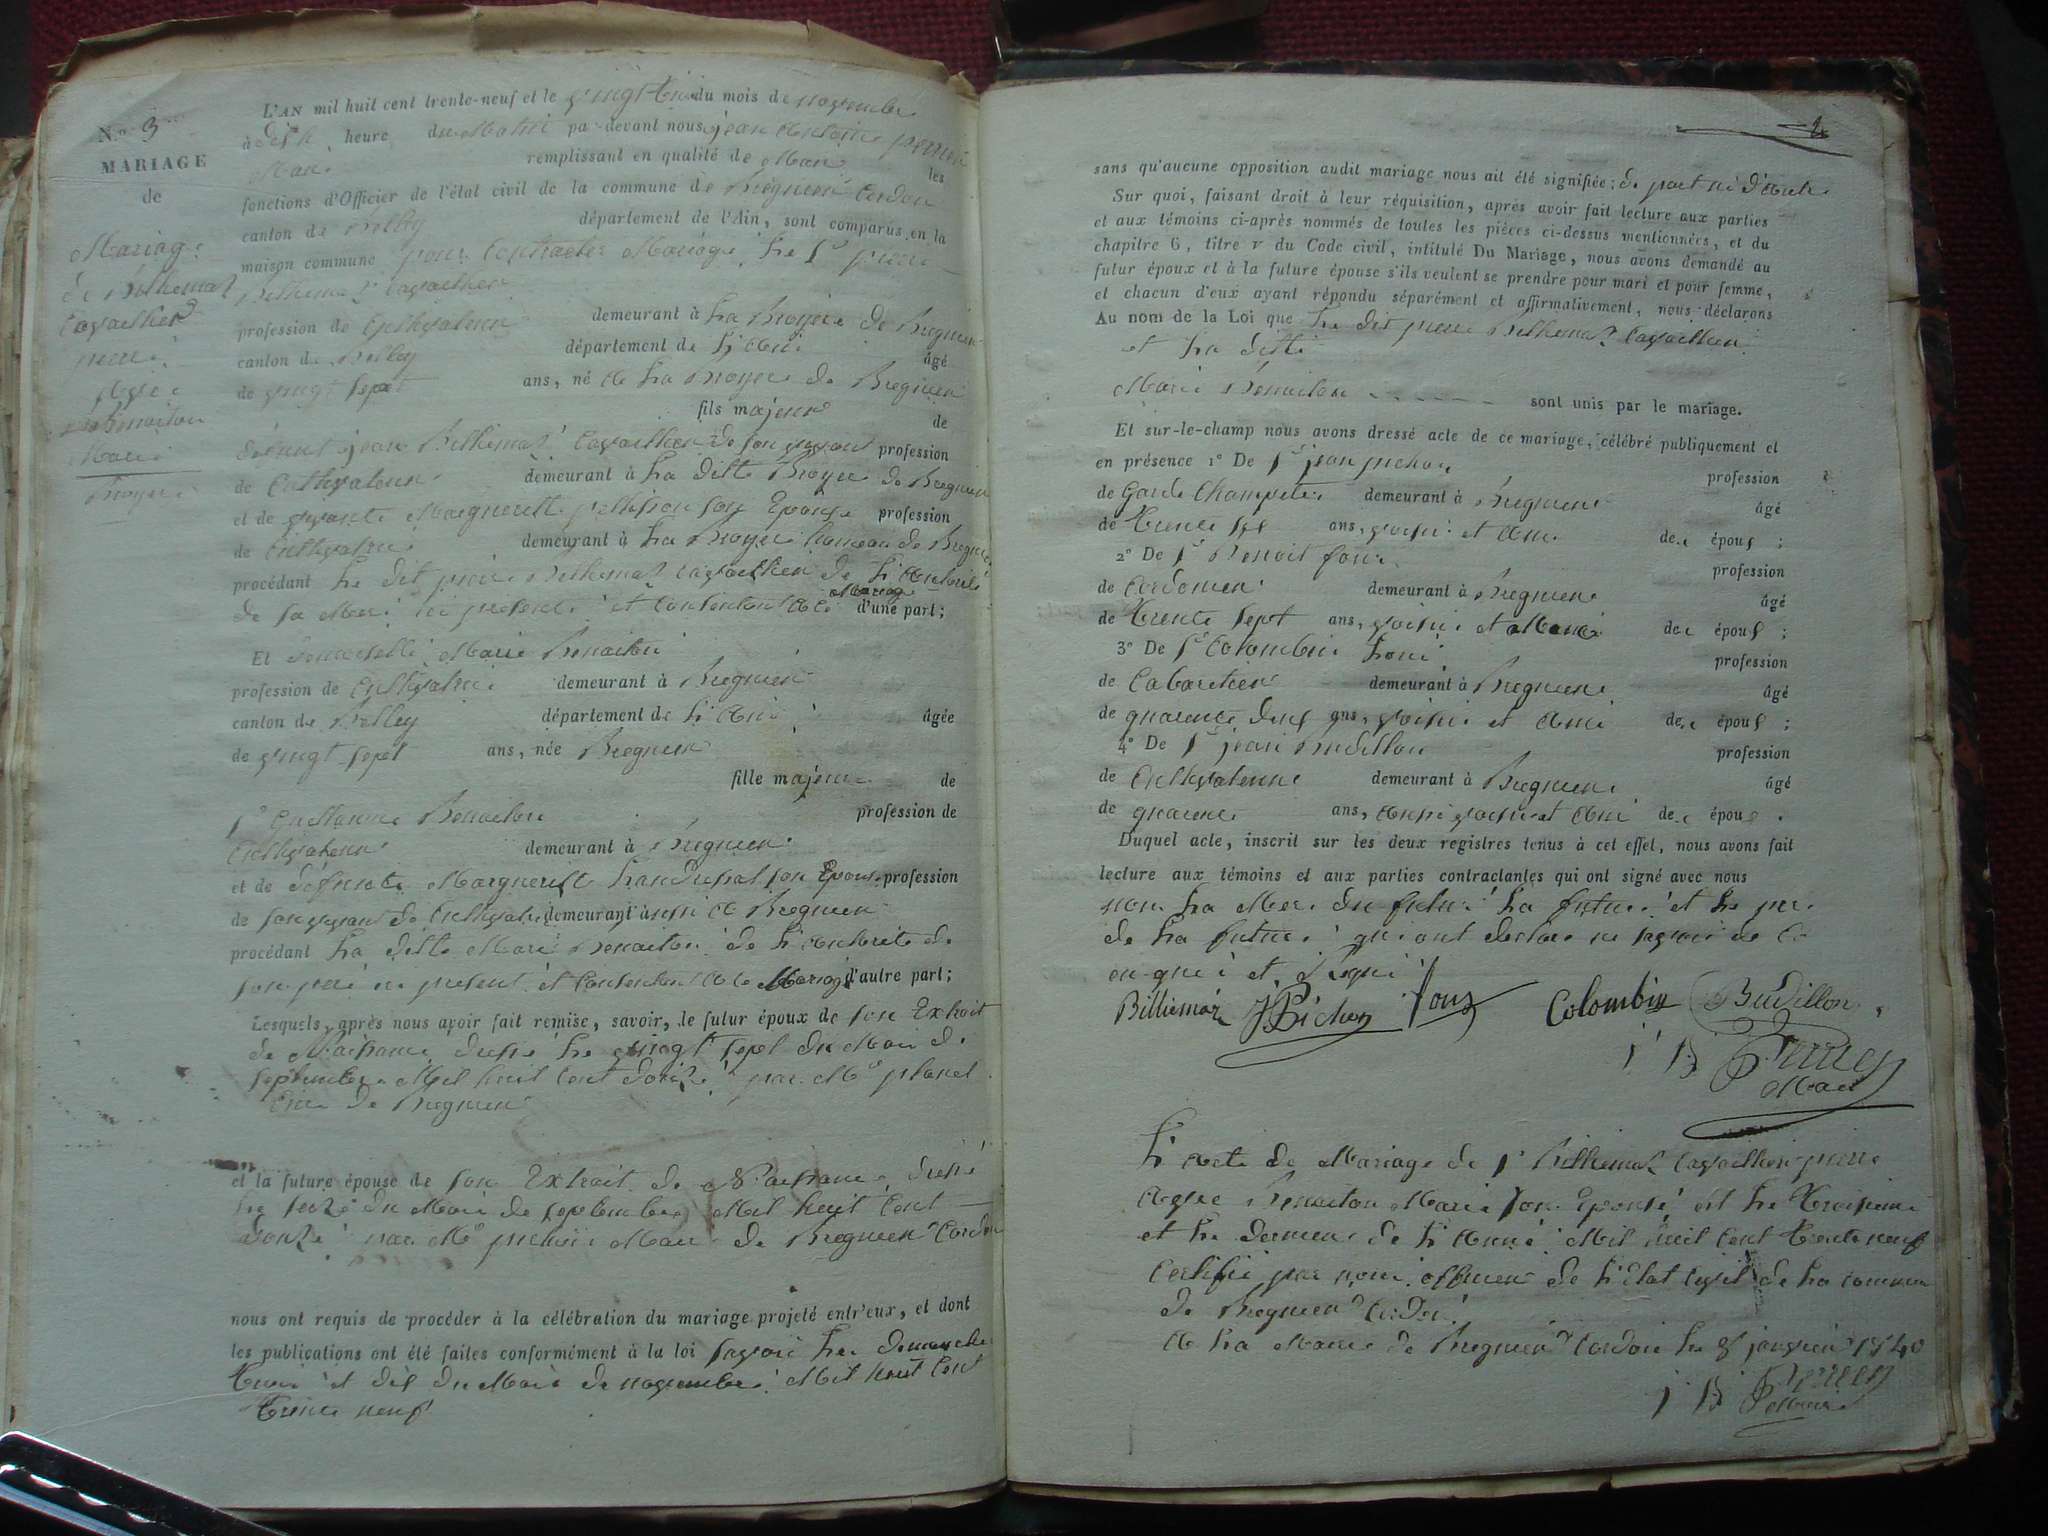 N.° 3
MARIAGE
de
Mariage
de Billiemaz
Cavaillier
pierre
Avec
Benoiton
Marie
L'AN mil huit cent trente-neuf et le vingt du mois de novembre
à dix heure du Matin par-devant nous jean Antoine perrier
Maire remplissant en qualité de Maire les
fonctions d'Officier de l'état civil de la commune de Bregnier Cordon
canton de Belley département de l'Ain, sont comparus en la
maison commune pour Contracter Mariage, Le Sr pierre
Billiemaz Cavaillier
profession de Cultivateur demeurant à La Bruyere de Bregnier
canton de Belley département de L'Ain âgé
de vingt sept ans, né à La Bruyere de Bregnier
fils majeur de
défunt jean Billiemaz Cavaillier de son vivant profession
de Cultivateur demeurant à La ditte Bruyere de Bregnier
et de vivante Margueritte pellisson son Epouse profession
de Cultivatrice demeurant à La Bruyere hameau de Bregnier
procédant Le dit pierre Billiemaz Cavaillier de L'Autorité
de sa Mere ici presente et Consentant Au Mariage d'une part;
Et Demoiselle Marie Benoiton
profession de Cultivatrice demeurant à Bregnier
canton de Belley département de L'Ain âgée
de vingt-sept ans, née Bregnier
fille majeure de
Sr Guillaume Benoiton profession de
Cultivateur demeurant à Bregnier
et de défunte Marguerite son Epouse profession
de son vivant de Cultivatrice demeurant aussi à Bregnier
procédant La ditte Marie Benoiton de L'Autorité de
son pere ici présent et Consentant Au Mariage d'autre part;
Lesquels, après nous avoir fait remise, savoir, le futur époux de son Extrait
de Naissance dressé Le vingt sept du Mois de
septembre Mil huit Cent douze par Mr planet
Maire de Bregnier
et la future épouse de son Extrait de Naissance dressé
Le seize du Mois de septembre Mil huit Cent
douze par Mr Maire de Bregnier Cordon
nous ont requis de procéder à la célébration du mariage projeté entr'eux, et dont
les publications ont été faites conformément à la loi savoir Les dimanches
trois et dix du Mois de novembre Mil huit Cent
Trente neuf
sans qu'aucune opposition audit mariage nous ait été signifiée; de part ni d'Autre
Sur quoi, faisant droit à leur réquisition, après avoir fait lecture aux parties
et aux témoins ci-après nommés de toutes les pièces ci-dessus mentionnées, et du
chapitre 6, titre v du Code civil, intitulé Du Mariage, nous avons demandé au
futur époux et à la future épouse s'ils veulent se prendre pour mari et pour femme,
et chacun d'eux ayant répondu séparément et affirmativement, nous déclarons
Au nom de la Loi que Le dit pierre Billiemaz Cavaillier
et La ditte
Marie Benoiton sont unis par le mariage.
Et sur-le-champ nous avons dressé acte de ce mariage, célébré publiquement et
en présence 1° De Sr jean pichon profession
de Garde Champetre demeurant à Bregnier âgé
de Trente six ans, voisin et Ami des époux ;
2° De Sr Benoit foux profession
de Cordonier demeurant à Bregnier âgé
de Trente sept ans, voisin et Ami des époux ;
3° De Sr Colombin profession
de Cabaretier demeurant à Bregnier âgé
de quarente deux ans, voisin et Ami des époux ;
4° De Sr jean Budillon profession
de Cultivateur demeurant à Bregnier âgé
de quarente ans, Aussi voisin et Ami des époux .
Duquel acte, inscrit sur les deux registres tenus à cet effet, nous avons fait
lecture aux témoins et aux parties contractantes qui ont signé avec nous
non La Mere du futur La future et Le pere
de La future qui ont declaré ne savoir de Ce
enquis et requis
Billiemaz JPichon foux Colombin Budillon
Perrier
Maire
L'Acte de Mariage de Sr Billiemaz Cavaillier pierre
Avec Benoiton Marie son Epouse est Le Troisieme
et Le dernier de L'Année Mil huit Cent Trente neuf
Certifié par nous officier de L'Etat Civil de La commune
de Bregnier Cordon
A La Mairie de Bregnier Cordon Le 8 janvier 1840
Perrier
Maire